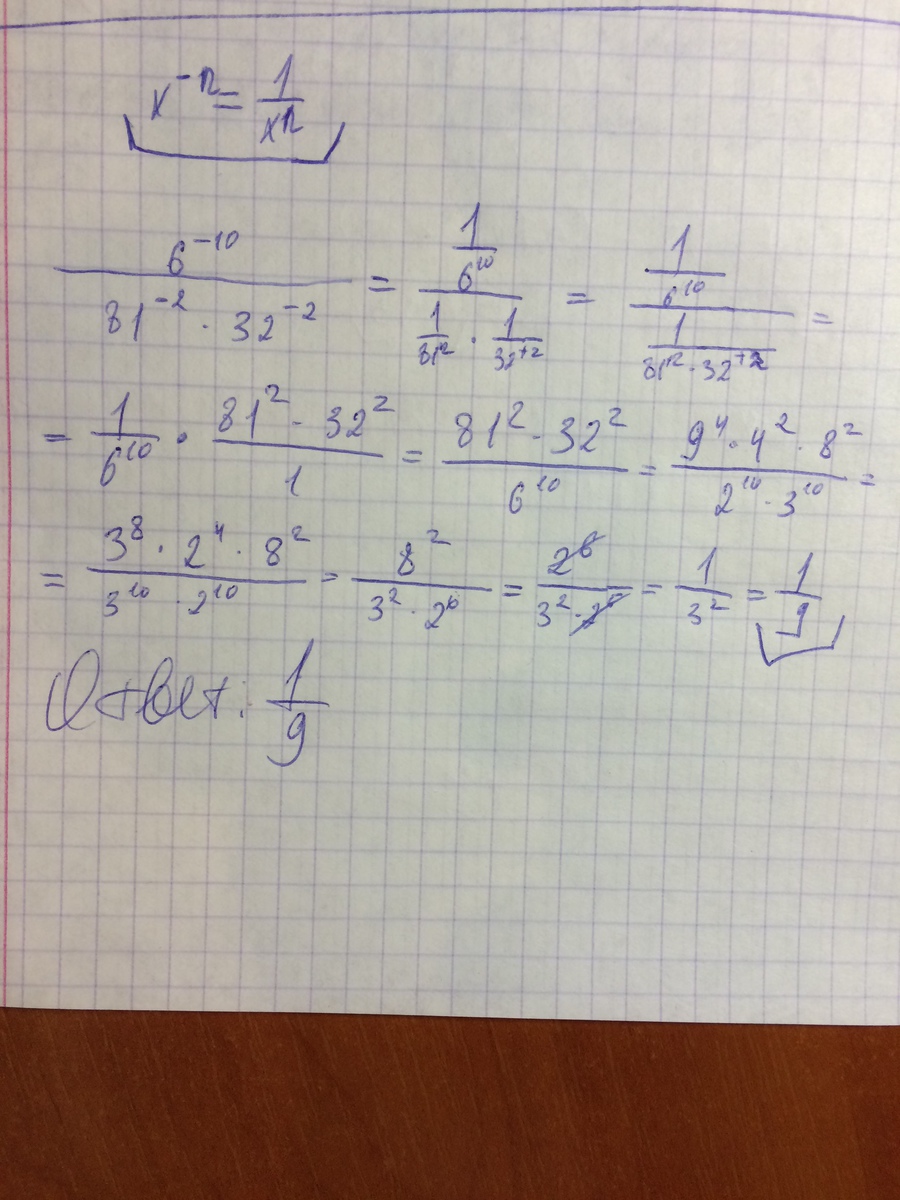 x^{-n} = \frac{1}{x^n}
\frac{6^{-10}}{81^{-2} \cdot 32^{-2}} = \frac{\frac{1}{6^{10}}}{\frac{1}{81^2} \cdot \frac{1}{32^{+2}}} = \frac{\frac{1}{6^{10}}}{\frac{1}{81^2 \cdot 32^{+2}}} =
= \frac{1}{6^{10}} \cdot \frac{81^2 \cdot 32^2}{1} = \frac{81^2 \cdot 32^2}{6^{10}} = \frac{9^4 \cdot 4^2 \cdot 8^2}{2^{10} \cdot 3^{10}} =
= \frac{3^8 \cdot 2^4 \cdot 8^2}{3^{10} \cdot 2^{10}} = \frac{8^2}{3^2 \cdot 2^6} = \frac{2^6}{3^2 \cdot 2^6} = \frac{1}{3^2} = \frac{1}{9}
Ответ: \frac{1}{9}